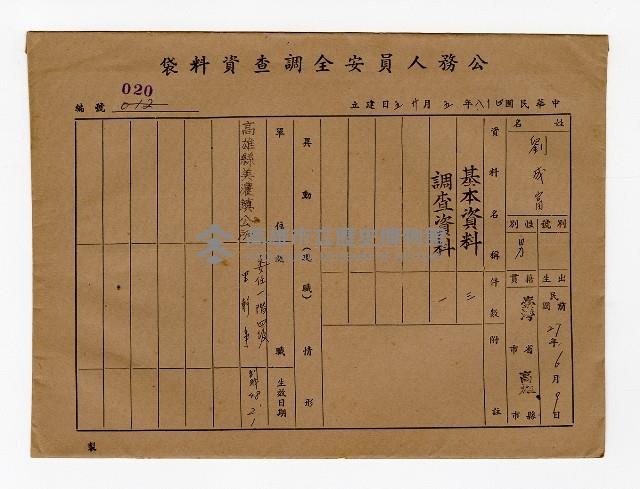 公務人員安全調查資料袋
020
編號 012
中華民國四十八年五月廿五日建立
姓名
劉成富
別號
性別
男
出生
民國前
27年6月9日
籍貫
臺灣省市
高雄縣市
資料名稱
件數
附註
基本資料
三
調查資料
一
異動(現職)情形
單位
級職
生效日期
高雄縣美濃鎮公所
委任一階四級
里幹事
48.2.1
高雄市立歷史博物館
製